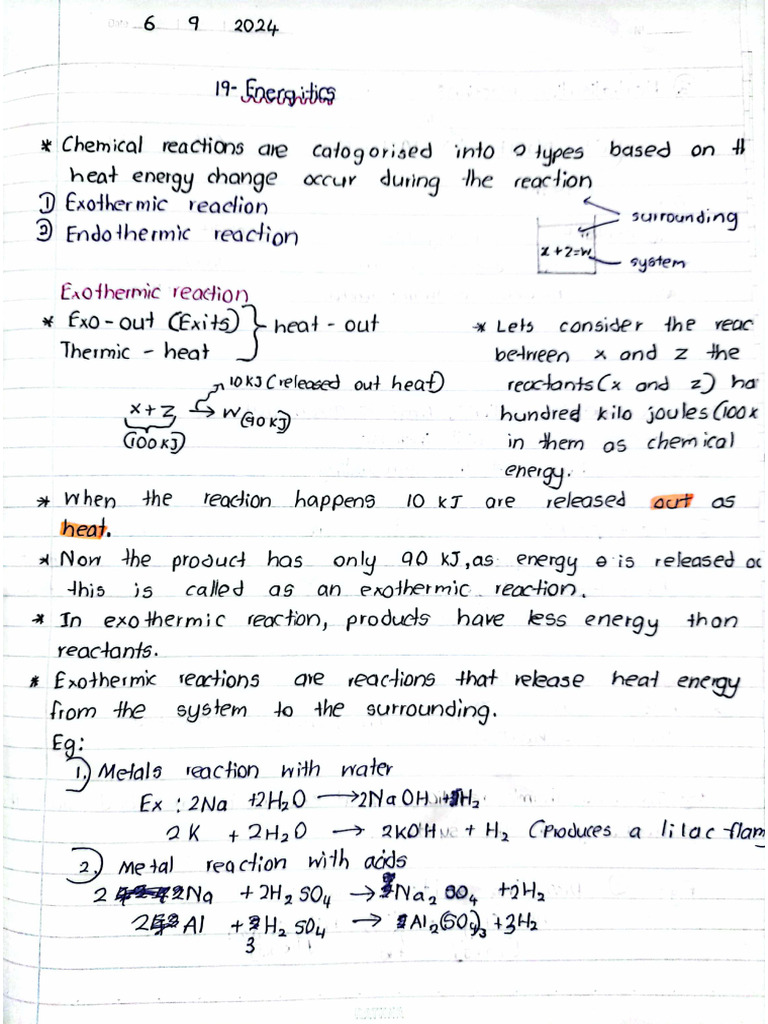 Date 6 9 2024
19- Energitics
* Chemical reactions are catogorised into 2 types based on th
heat energy change occur during the reaction
① Exothermic reaction
② Endothermic reaction
surrounding
x + z = w
system
Exothermic reaction
* Exo - out (Exits)
Thermic - heat
heat - out
10 KJ (released out heat)
x + z → w (90 KJ)
(100 KJ)
* Lets consider the reac
between x and z the
reactants (x and z) ha
hundred kilo joules (100 k
in them as chemical
energy.
* When the reaction happens 10 KJ are released out as
heat.
* Now the product has only 90 KJ, as energy is released ou
this is called as an exothermic reaction.
* In exothermic reaction, products have less energy than
reactants.
* Exothermic reactions are reactions that release heat energy
from the system to the surrounding.
Eg:
1.) Metals reaction with water
Ex : 2Na + 2H₂O → 2NaOH + H₂
2K + 2H₂O → 2KOH + H₂ (Produces a lilac flam
2.) Metal reaction with acids
2 Na + 2H₂SO₄ → Na₂SO₄ + 2H₂
2 Al + 3 H₂SO₄ → Al₂(SO₄)₃ + 3H₂